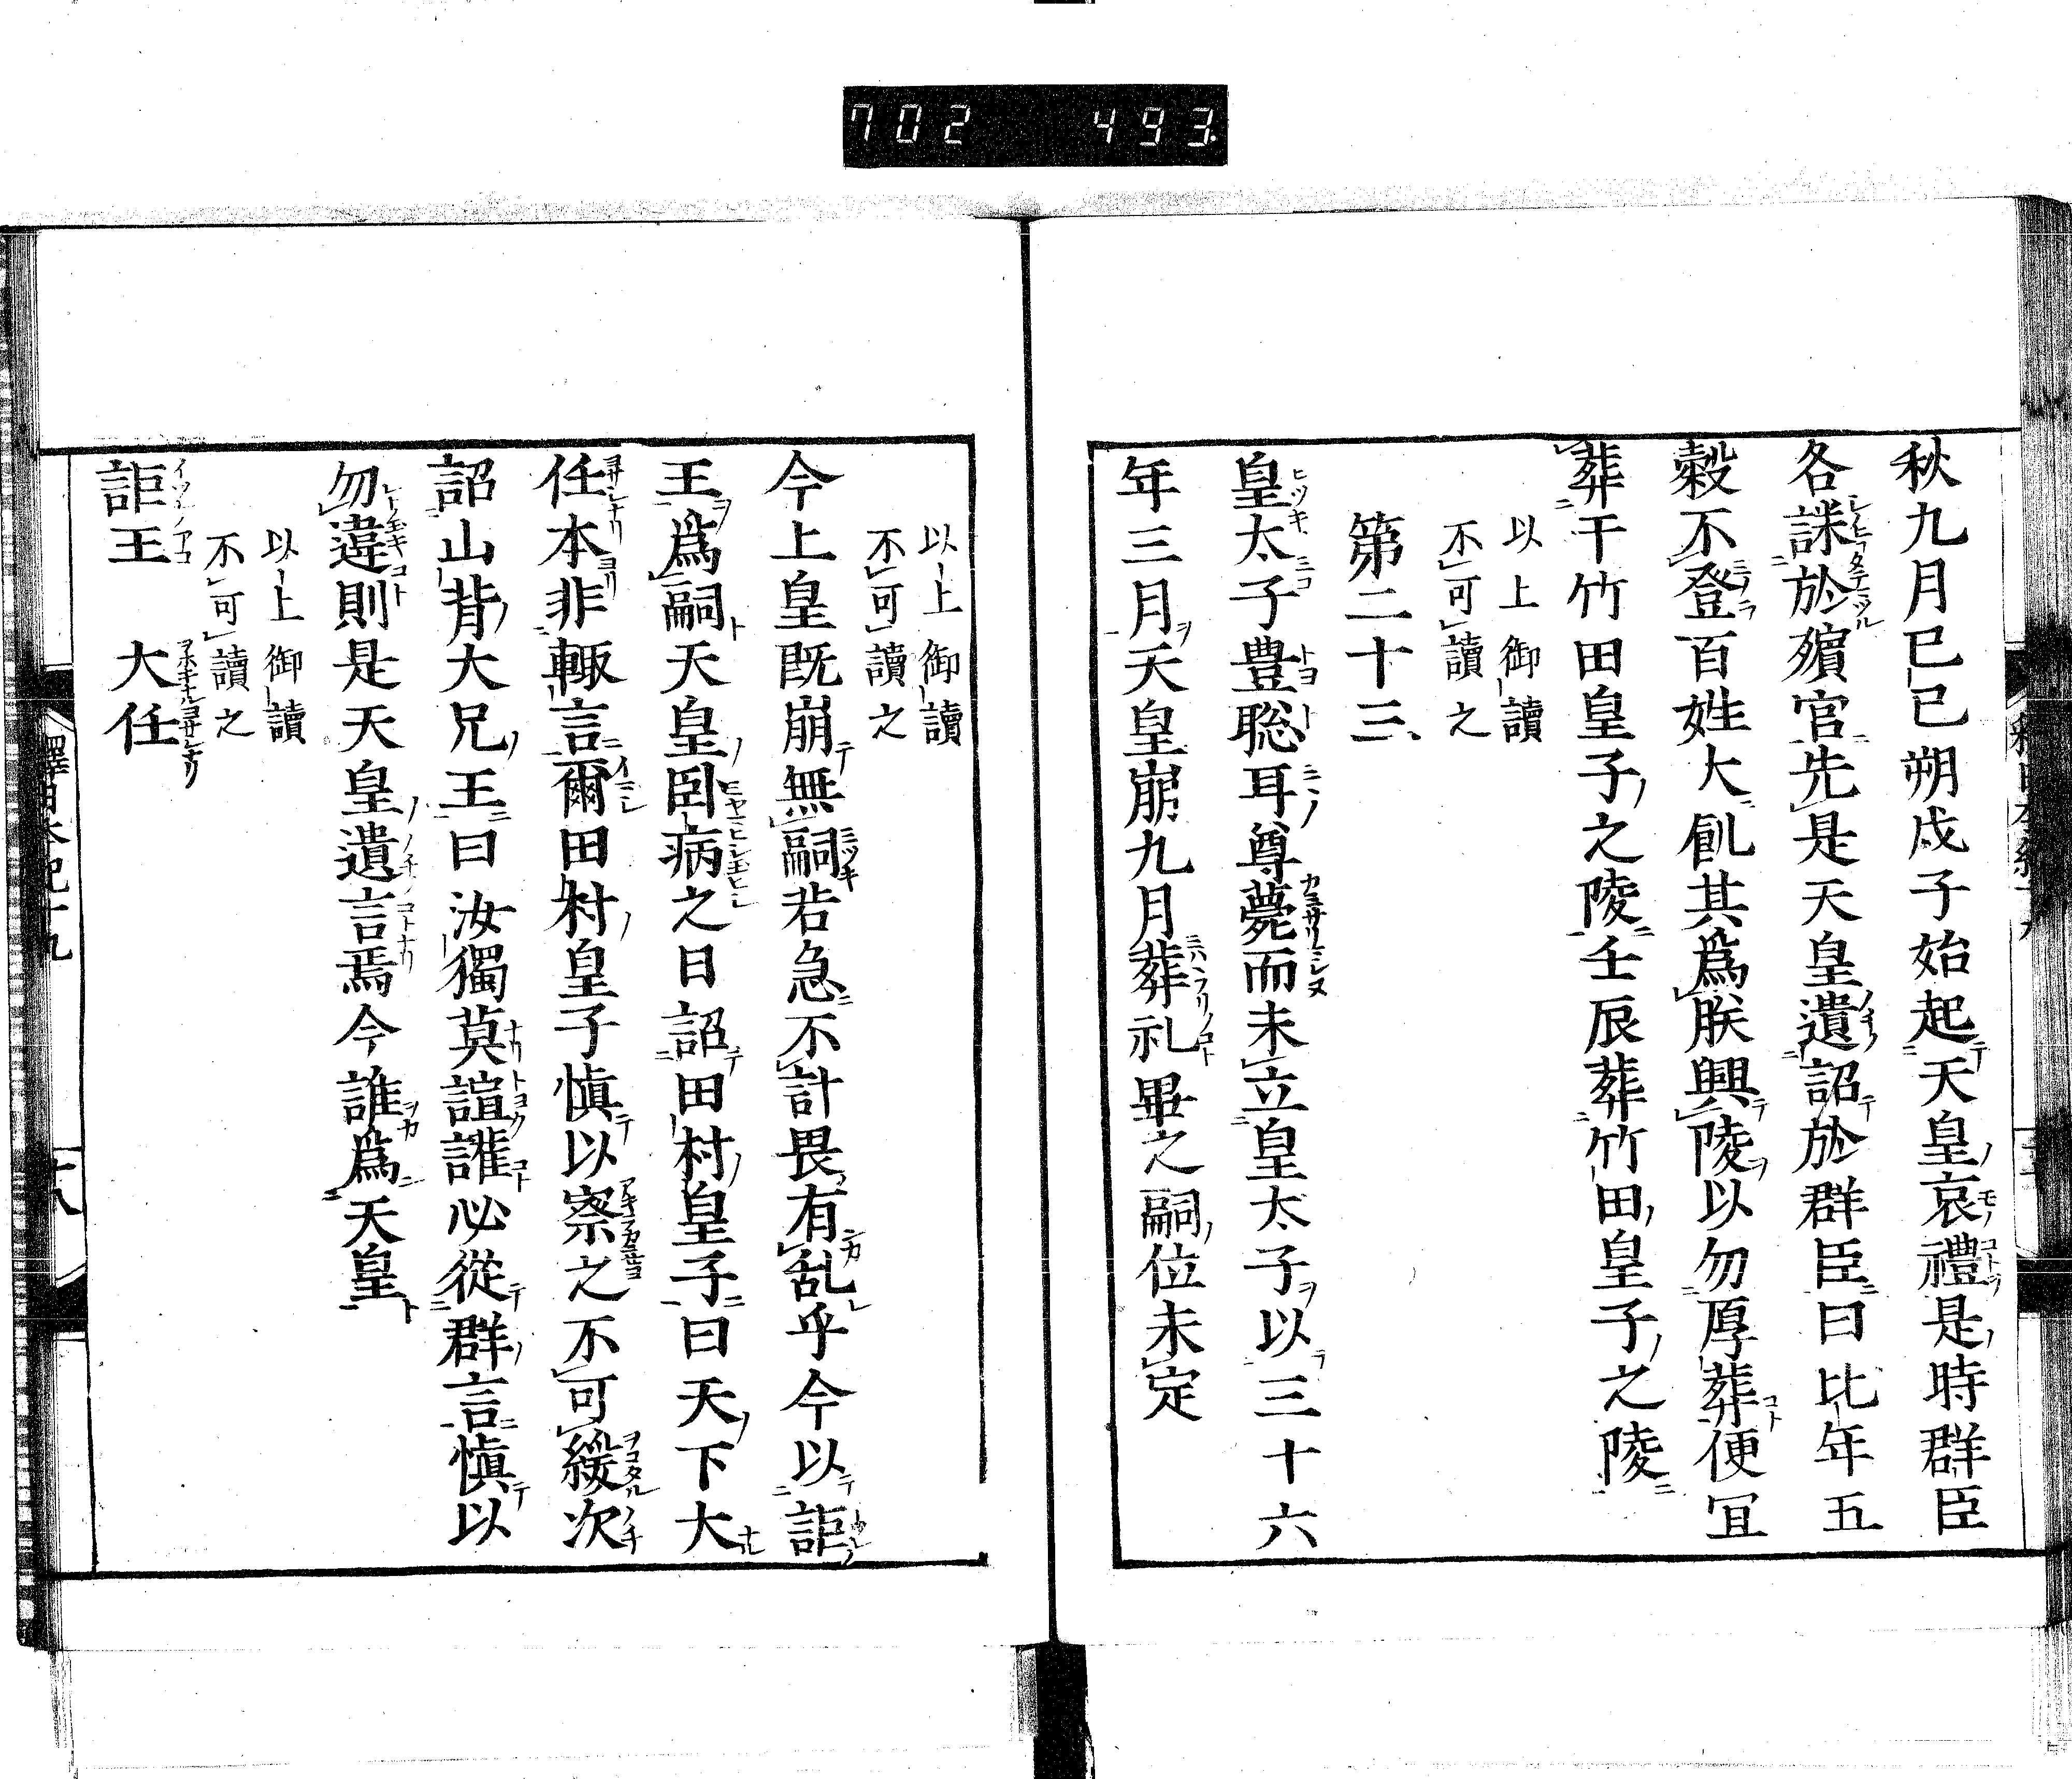 702 493
秋九月巳巳朔戊子始起天皇哀禮是時群臣
各誄於殯官先是天皇遺詔於群臣曰比年五
穀不登百姓大飢其爲朕興陵以勿厚葬便冝
葬干竹田皇子之陵壬辰葬竹田皇子之陵
以上御讀
不可讀之
第二十三
皇太子豊聡耳尊薨而未立皇太子以三十六
年三月天皇崩九月葬礼畢之嗣位未定
以上御讀
不可讀之
今上皇既崩無嗣若急不計畏有乱乎今以詎
王爲嗣天皇臥病之日詔田村皇子曰天下大
任本非輙言爾田村皇子慎以察之不可緩次
詔山背大兄王曰汝獨莫諠讙必從群言慎以
勿違則是天皇遺言焉今誰爲天皇
以上御讀
不可讀之
詎王 大任
釋日本紀十九
十八